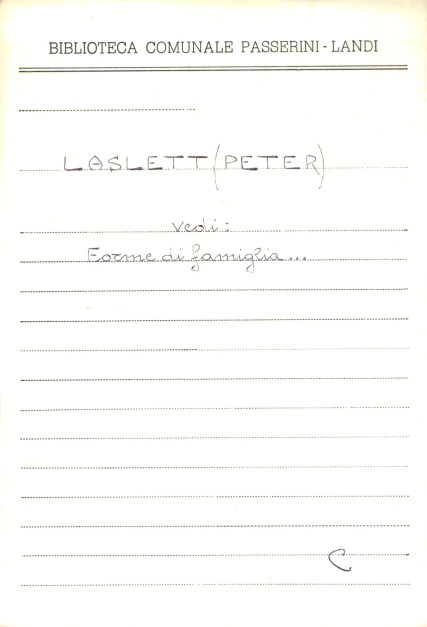 BIBLIOTECA COMUNALE PASSERINI - LANDI
LASLETT (PETER)
Vedi:
Forme di famiglia...
C